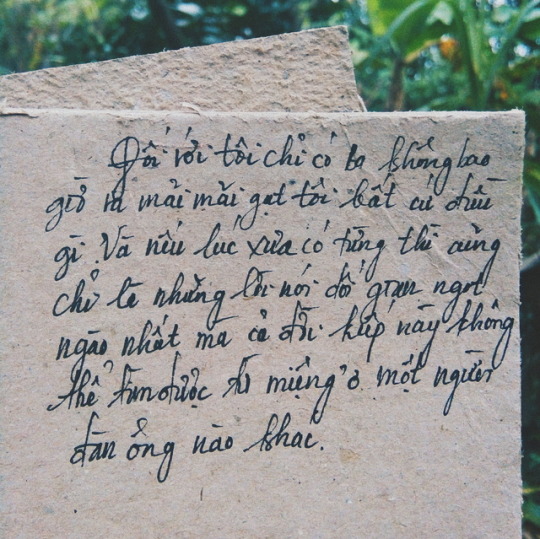 Đối với tôi chỉ có ba không bao
giờ và mãi mãi gạt tôi bất cứ điều
gì. Và nếu lúc xưa có từng thì cũng
chỉ là những lời nói dối gian ngọt
ngào nhất mà cả đời kiếp này không
thể tìm được từ miệng ở một người
đàn ông nào khác.